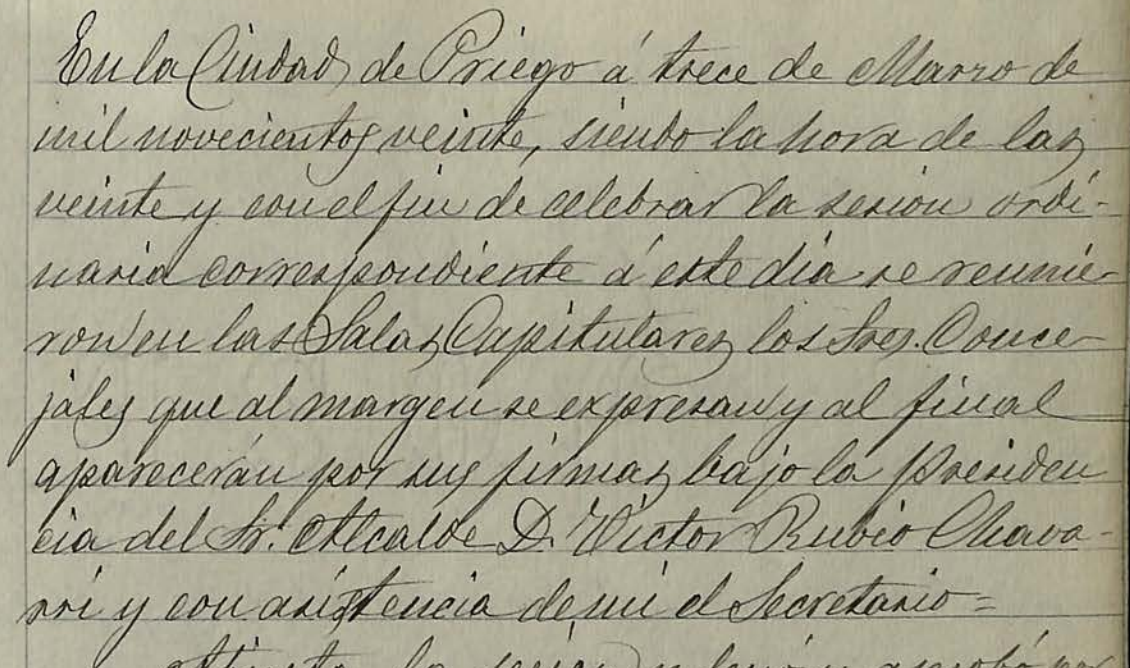 En la Ciudad de Priego á trece de Marzo de
mil novecientos veinte, siendo la hora de las
veinte y con el fin de celebrar la sesion ordi-
naria correspondiente á este día se reunie-
ron en las Salas Capitulares los Sres. Conce-
jales que al margen se expresan y al final
aparecerán por sus firmas bajo la Presiden
cia del Sr. Alcalde D. Víctor Rubio Chava-
rri y con asistencia de mi el Secretario=
la